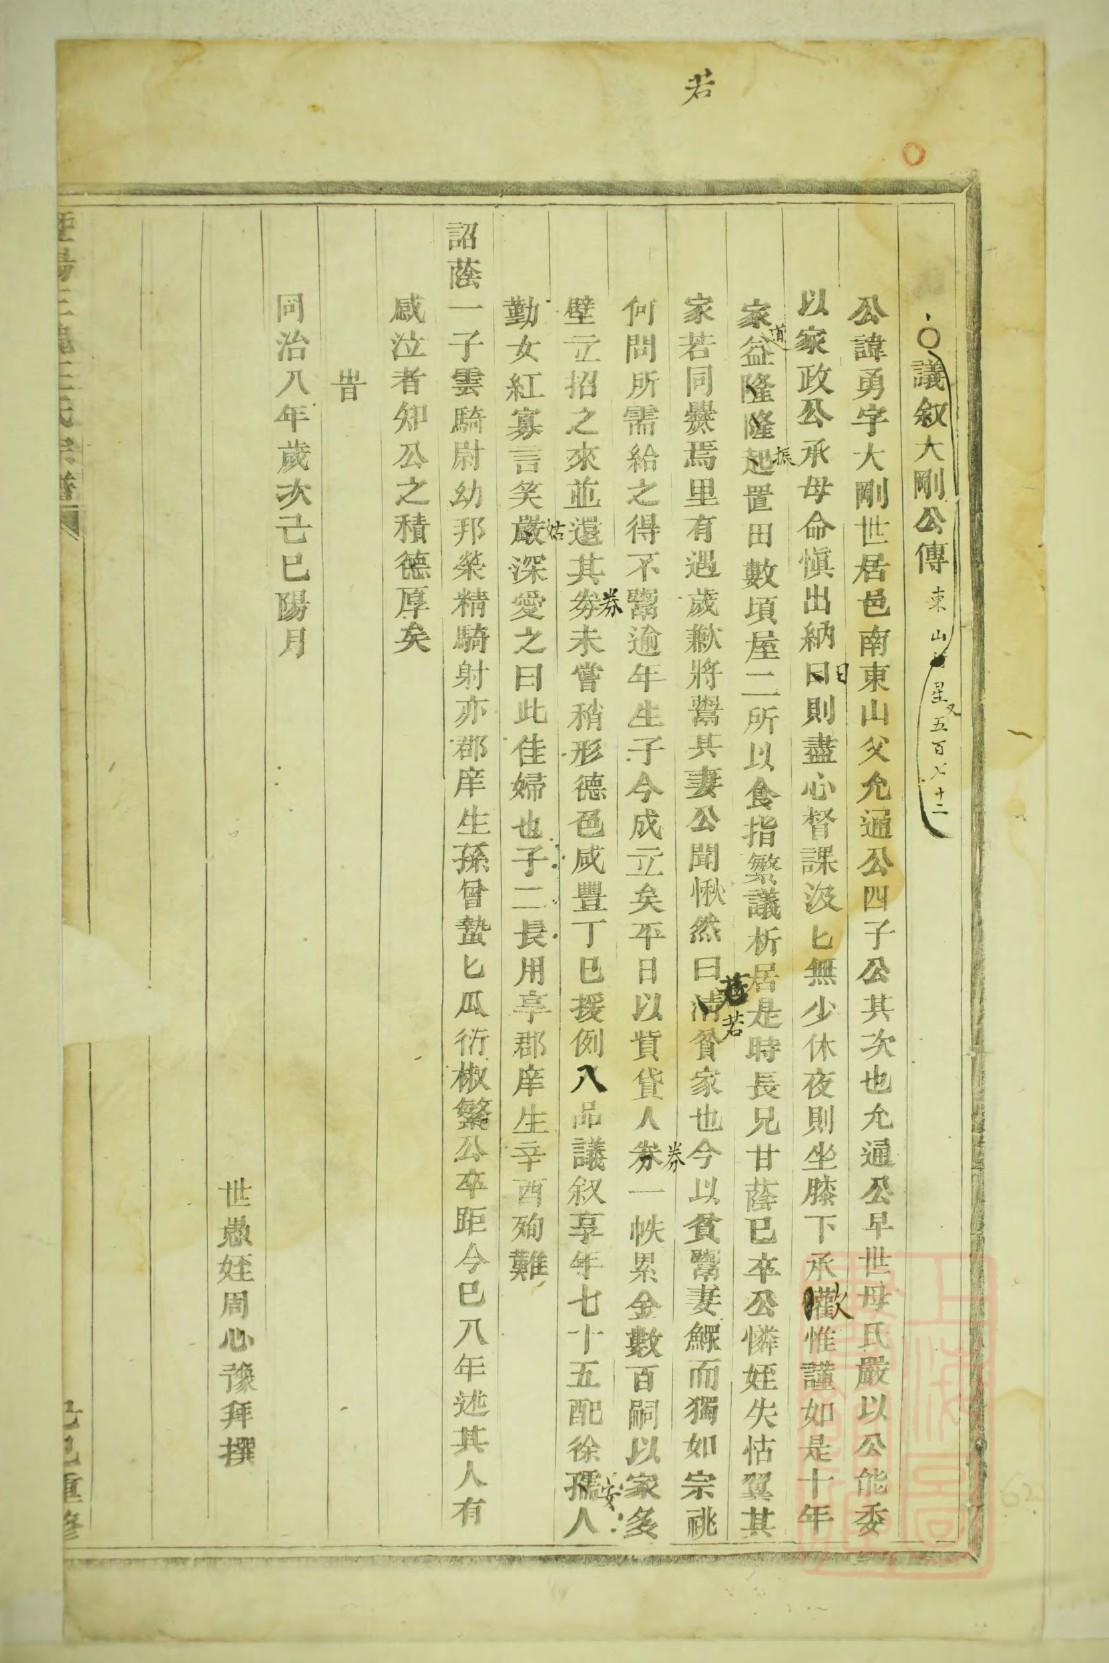 若
議叙大剛公傳 東山 星五百七十二
公諱勇字大剛世居邑南東山父允通公四子公其次也允通公早世母氏嚴以公能委
以家政公承母命愼出納日則盡心督課汲匕無少休夜則坐膝下承歡惟謹如是十年
家益隆隆起置田數頃屋二所以食指繁議析居是時長兄甘蔭已卒公憐姪失怙翼其
家若同爨焉里有遇歲歉將鬻其妻公聞愀然曰清貧家也今以貧鬻妻鰥而獨如宗祧
何問所需給之得不鬻逾年生子今成立矣平日以貲貸人券一帙累金數百嗣以家多
壁立招之來並還其券未嘗稍形德色咸豐丁巳援例八品議叙享年七十五配徐孺人
勤女紅寡言笑嚴深愛之曰此佳婦也子二長用享郡庠生辛酉殉難
詔蔭一子雲騎尉幼邦榮精騎射亦郡庠生孫曾蟄匕瓜衍椒繁公卒距今已八年述其人有
感泣者知公之積德厚矣
旹
同治八年歲次己巳陽月
世愚姪周心豫拜撰
己巳重修